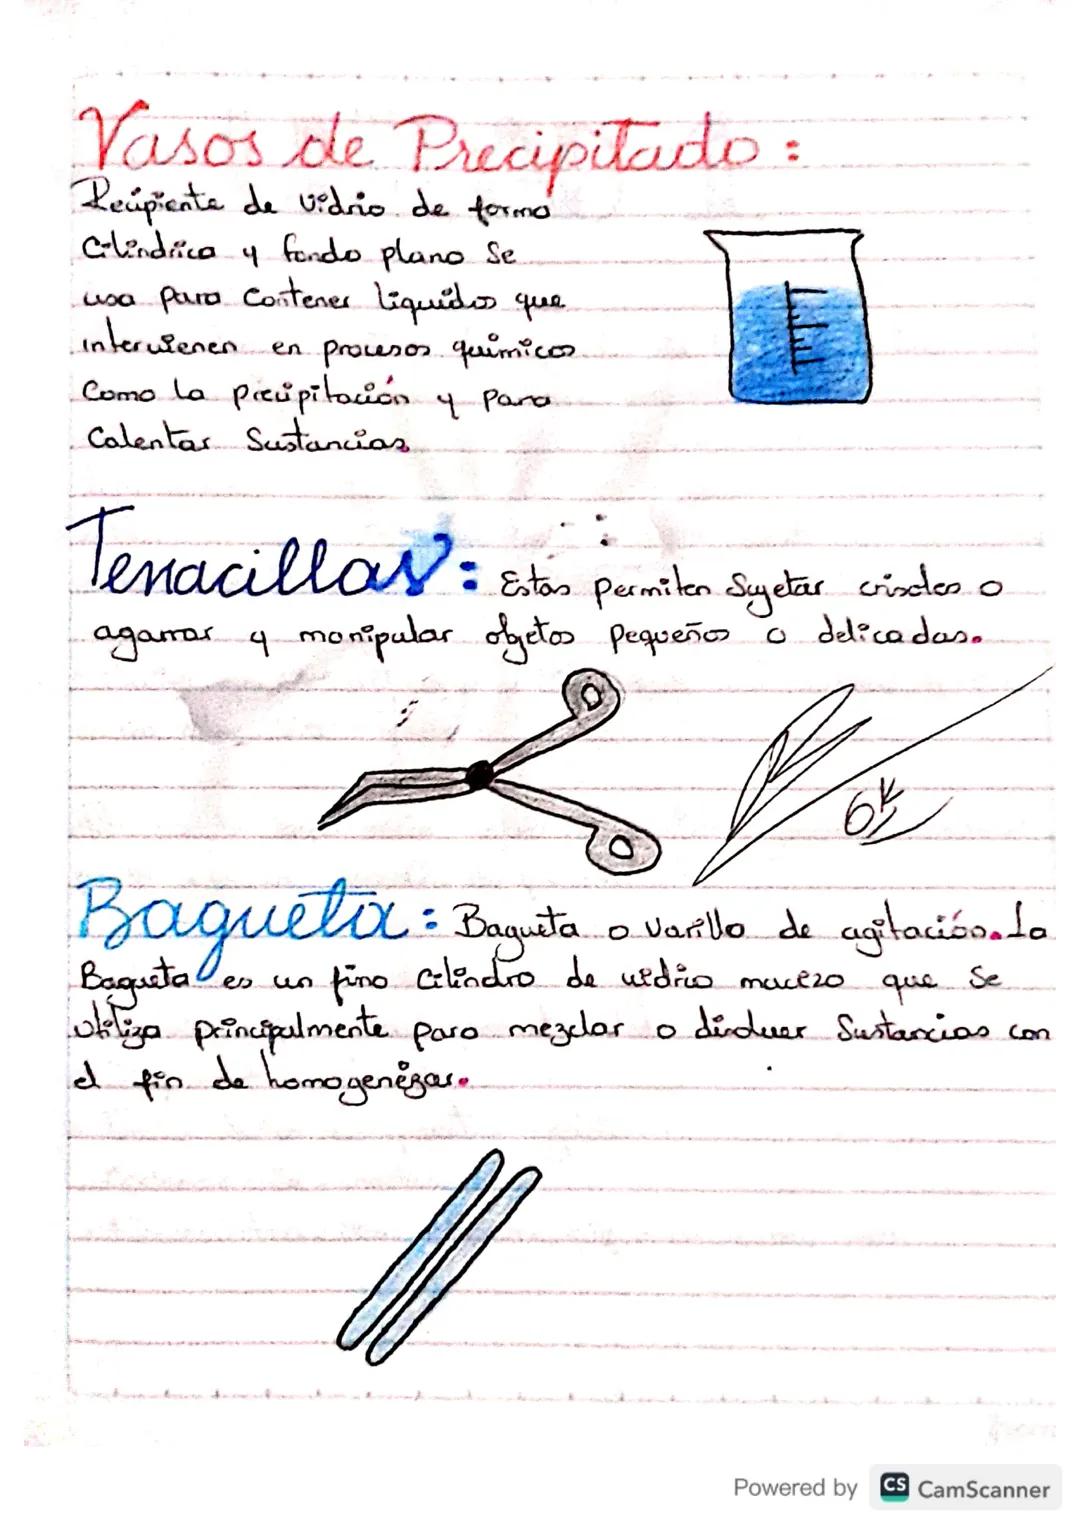 Vasos de Precipitado :
Recipiente de vidrio de forma
Cilindrica y fondo plano Se
usa para Contener liquidos que
intervienen en procesos quimicos
Como la precipitación y para
Calentar Sustancias.
Tenacillas: Estas permiten Sujetar crisoles o
agarrar y manipular objetos pequeños o delicadas.
Bagueta: Bagueta o varilla de agitación. La
Bagueta es un fino Cilindro de vidrio macizo que Se
utiliza principalmente para mezclar o disolver Sustancias con
el fin de homogenizar.
Powered by CS CamScanner